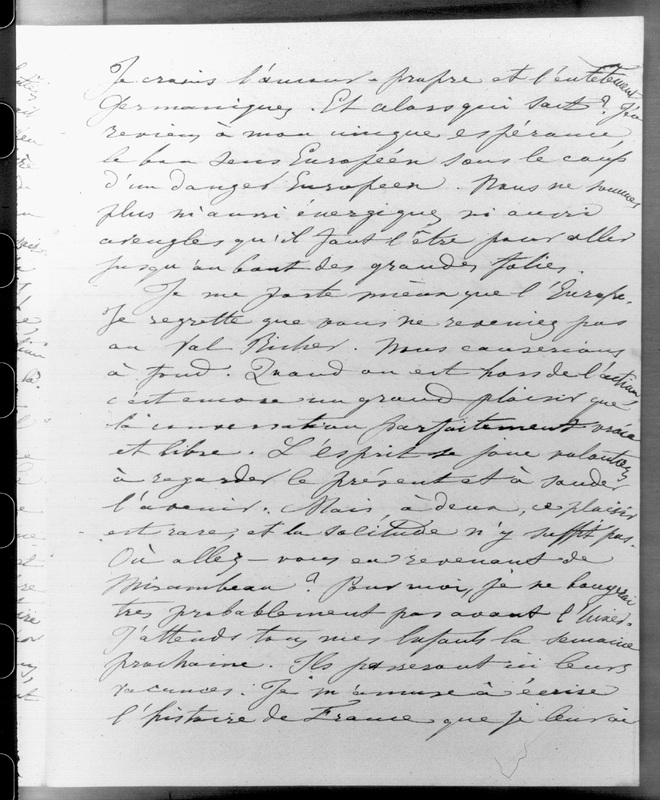 Je crains l'amour-propre et l'entêtement
Germaniques. Et alors qui sait ? J'en
reviens à mon unique espérance
le bon sens Européen sous le coup
d'un danger Européen. Nous ne sommes
plus ni aussi énergiques, ni aussi
aveugles qu'il faut l'être pour aller
jusqu'au bout des grandes folies.
Je me porte mieux que l'Europe.
Je regrette que vous ne reveniez pas
au Val Richer. Nous causerions
à fond. Quand on est hors de l'action
c'est encore un grand plaisir que
la conversation parfaitement vraie
et libre. L'esprit se joue volontiers
à regarder le présent et à sonder
l'avenir. Mais, à deux, ce plaisir
est rare, et la solitude n'y suffit pas.
Où allez-vous en revenant de
Mirambeau ? Pour moi, je ne bougerai
très probablement pas avant l'hiver.
J'attends tous mes enfants la semaine
prochaine. Ils passeront ici leurs
vacances. Je m'amuse à écrire
l'histoire de France que je leur ai